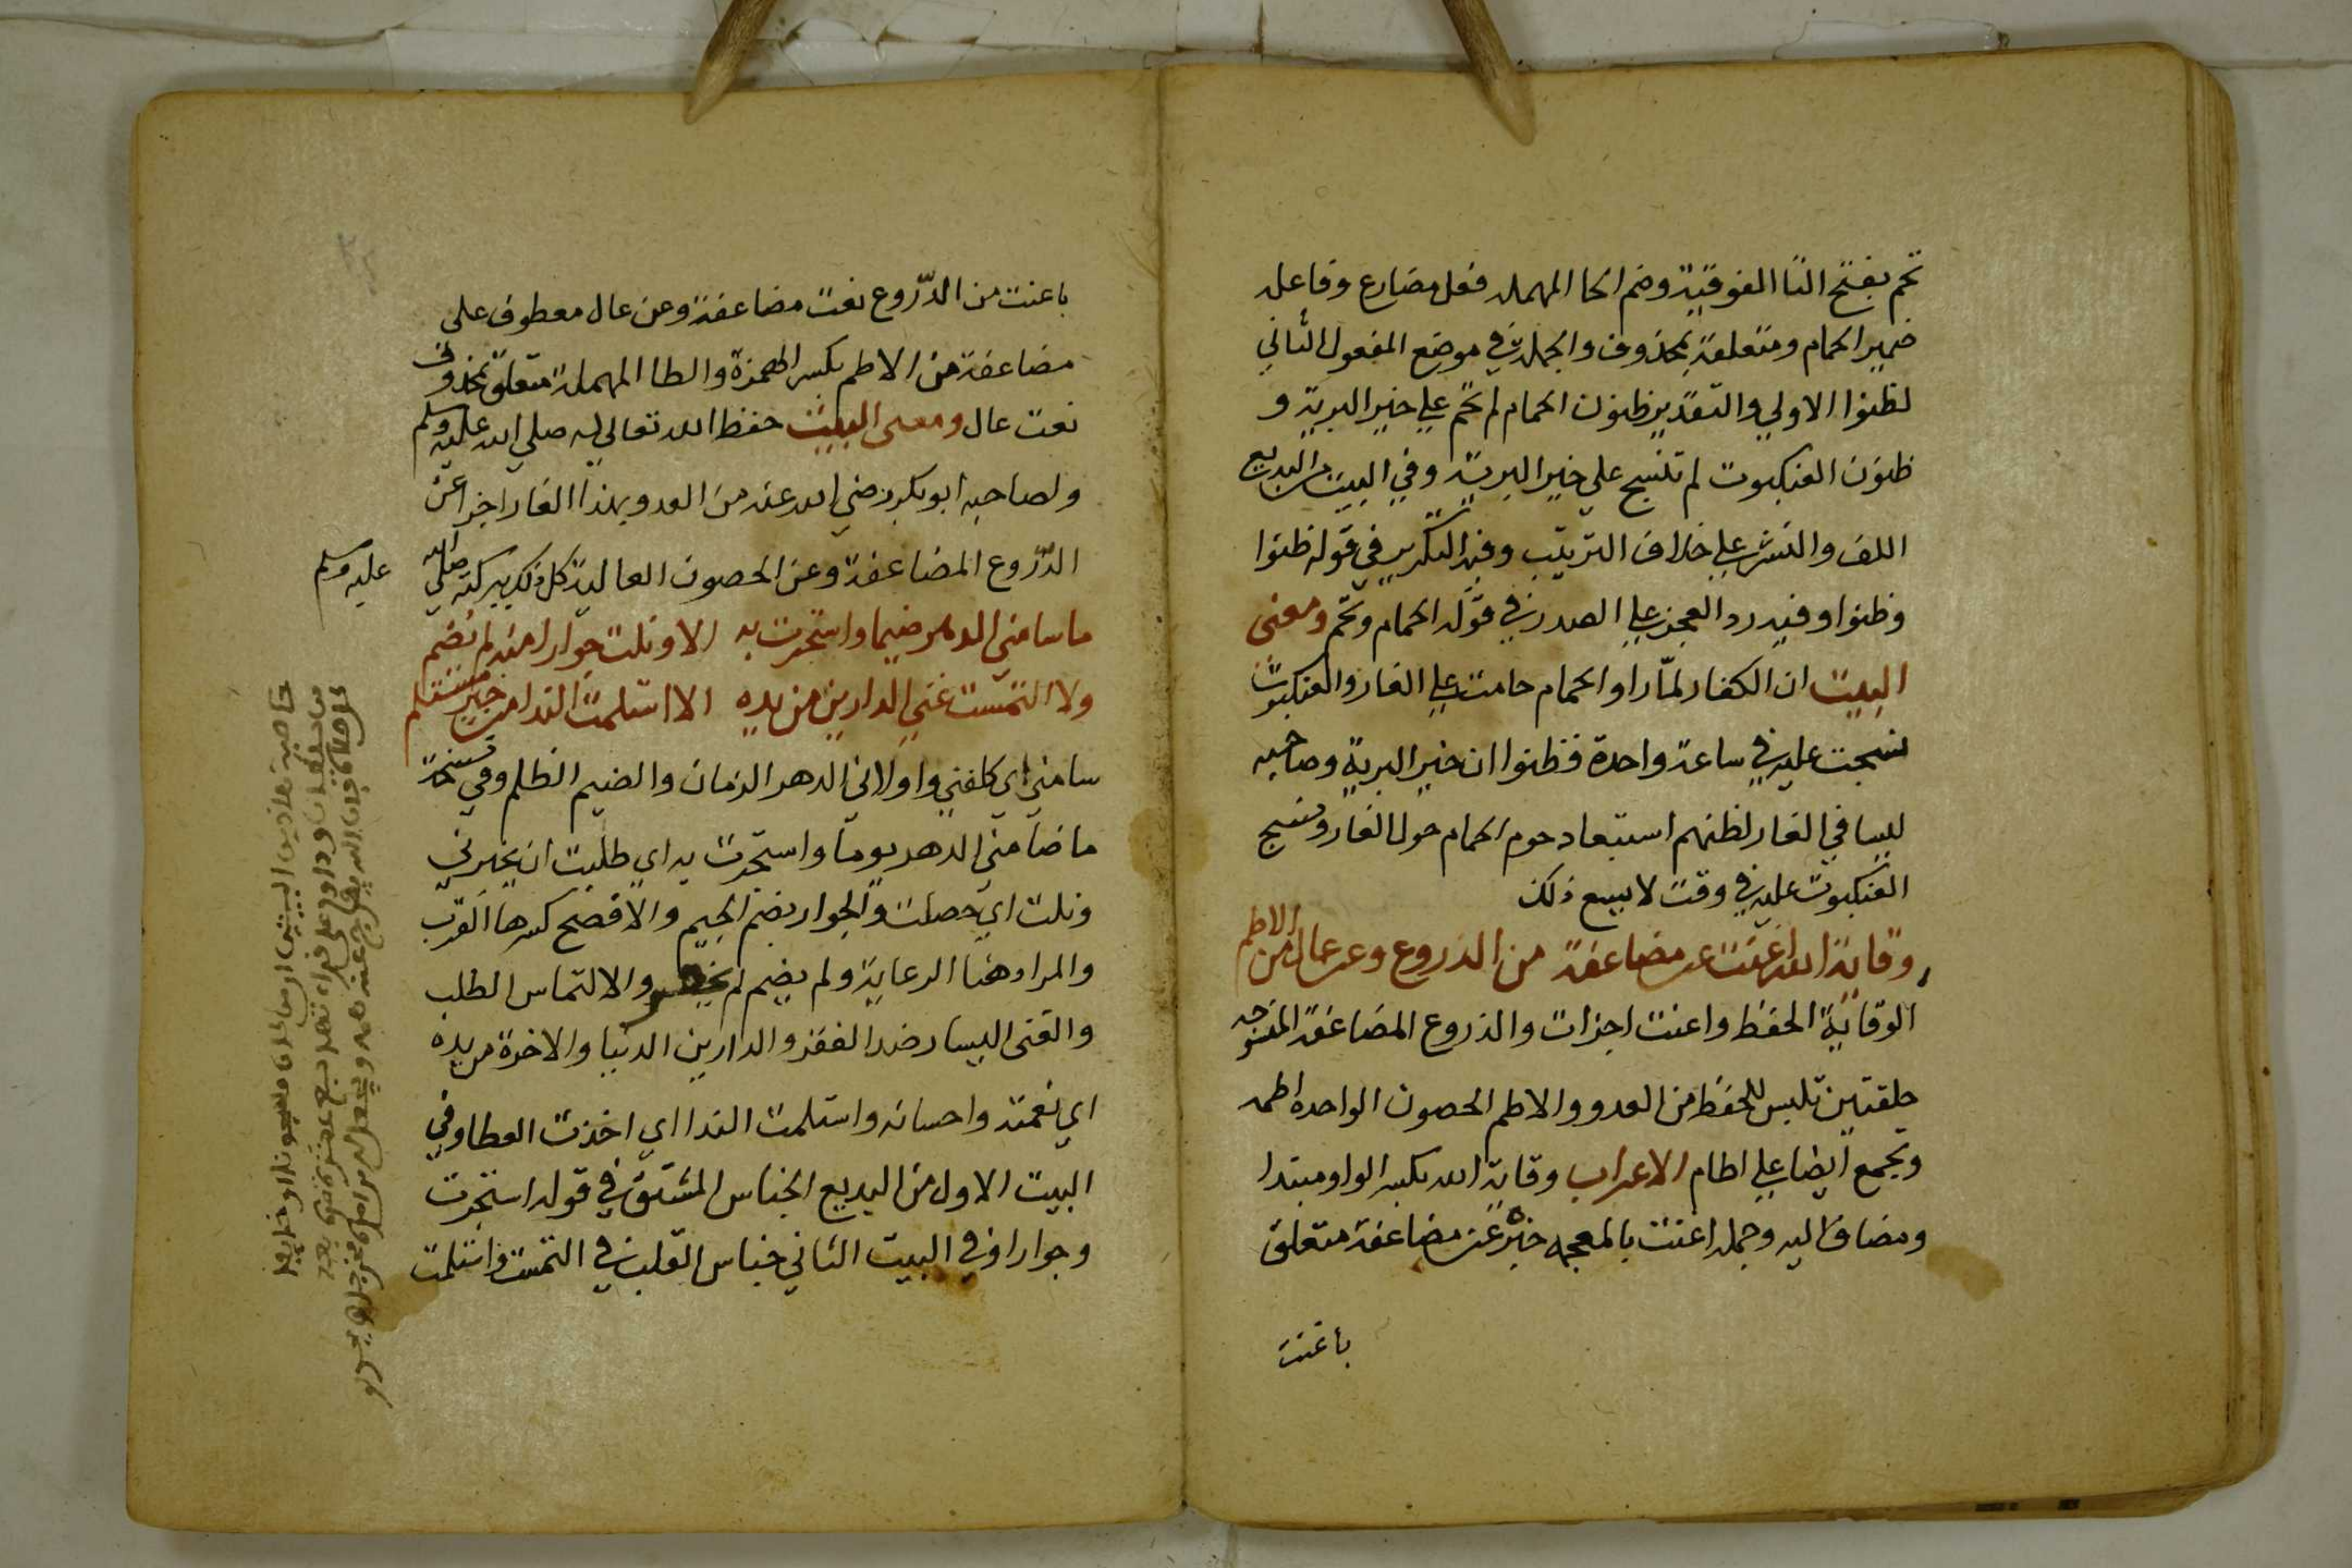 تحم بفتح التا الفوقية وضم الحا المهمله فعل مضارع وفاعله
ضمير الحمام ومتعلقة بمحذوف والجملة في موضع المفعول الثاني
لظنوا الاولي والتقدير ظنون الحمام لم تحم علي خير البرية و
ظنون العنكبوت لم تنسج علي خير البرية وفي البيت من البديع
اللف والنشر علي خلاف الترتيب وفيه التكرير في قوله ظنوا
وظنوا وفيه رد العجز علي الصدر في قوله الحمام وتحم ومعنى
البيت ان الكفار لما راوا الحمام حامت علي الغار والعنكبوت
نسجت عليه في ساعة واحدة فظنوا ان خير البرية وصاحبه
ليسا في الغار لظنهم استبعاد حوم الحمام حول الغار ونسج
العنكبوت عليه في وقت لا يسع ذلك
وقاية الله اغنت عن مضاعفة من الدروع وعن عال من الاطم
الوقاية الحفظ واغنت اجزات والدروع المضاعفة المنسوجه
حلقتين تلبس للحفظ من العدو والاطم الحصون الواحده اطمه
وتجمع ايضا علي اطام الاعراب وقاية الله بكسر الواو مبتدا
ومضاف اليه وجمله اغنت بالمعجمه خبره عن مضاعفة متعلق
باغنت
باغنت من الدروع نعت مضاعفة وعن عال معطوف على
مضاعفة من الاطم بكسر الهمزة والطا المهملة متعلق بمحذوف
نعت عال ومعنى البيت حفظ الله تعالي له صلي الله عليه وسلم
ولصاحبه ابو بكر رضي الله عنه من العدو بهذا الغار اجزا عن
الدروع المضاعفة وعن الحصون العالية كل ذلك ببركته صلي الله
عليه وسلم
ما سامني الدهر ضيما واستجرت به الا ونلت جوارا منه لم يضم
ولا التمست غني الدارين من يده الا استلمت الندا من خير مستلم
سامني اي كلفني واولاني الدهر الزمان والضيم الظلم وفي نسخة
ما ضامني الدهر يوما واستجرت به اي طلبت ان يجيرني
ونلت اي حصلت والجوار بضم الجيم والافصح كسرها القرب
والمراد هنا الرعاية ولم يضم لم والالتماس الطلب
والغنى اليسار ضد الفقر والدارين الدنيا والاخرة من يده
اي نعمته واحسانه واستلمت الندا اي اخذت العطا وفي
البيت الاول من البديع الجناس المشتق في قوله استجرت
وجوارا وفي البيت الثاني جناس القلب في التمست واستلمت